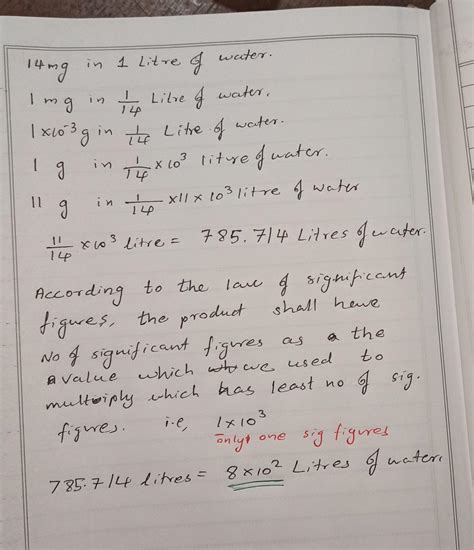 14mg in 1 Litre of water.
1 mg in 1/14 Litre of water.
1×10⁻³g in 1/14 Litre of water.
1 g in 1/14 ×10³ litre of water.
11 g in 1/14 ×11×10³ litre of water
11/14 ×10³ litre = 785.714 Litres of water.
According to the law of significant
figures, the product shall have
No of significant figures as the
value which we used to
multiply which has least no of sig.
figures. i.e, 1×10³
only one sig figures
785.714 litres = 8×10² Litres of water.